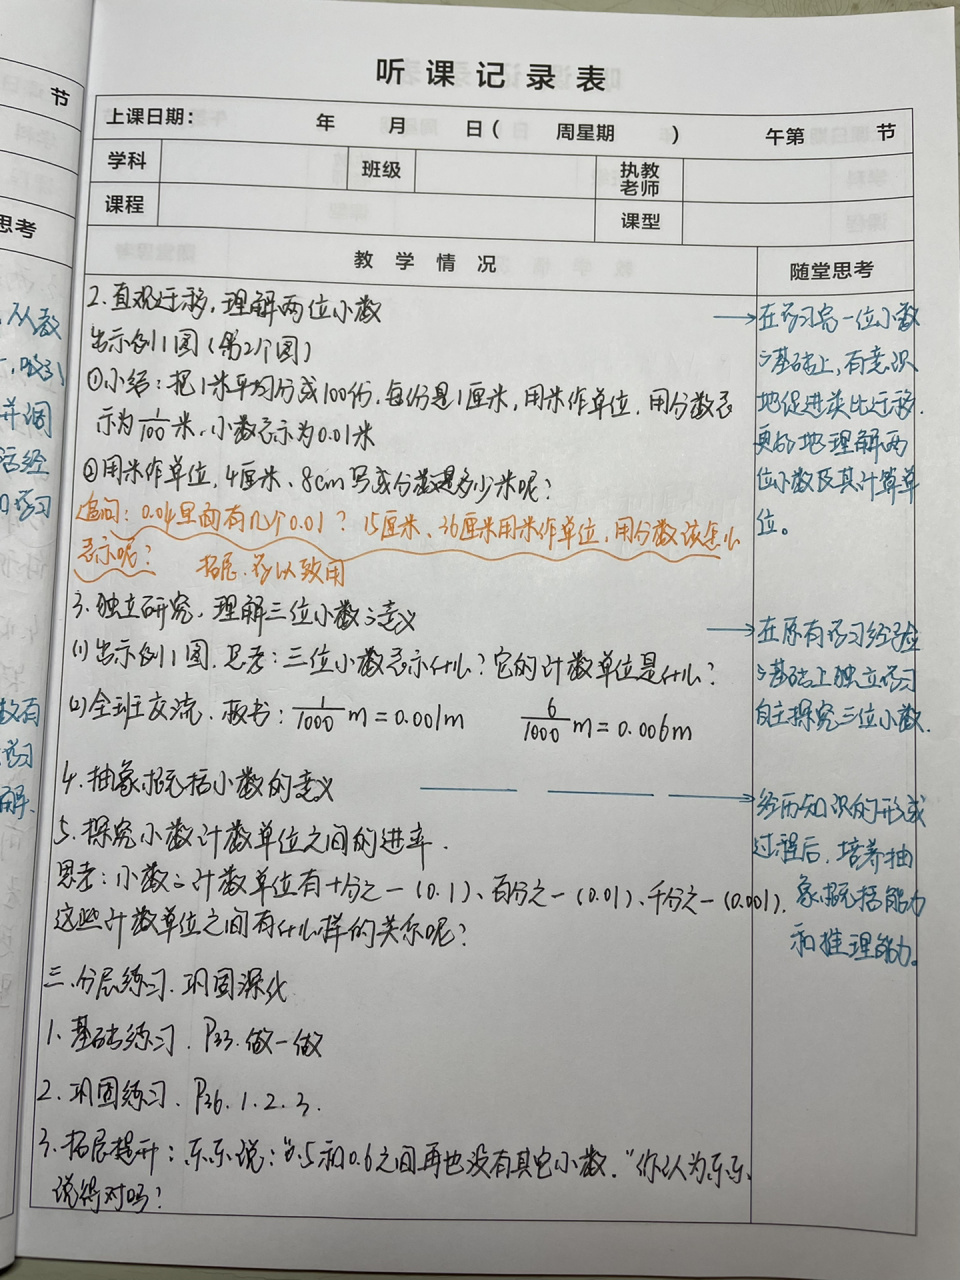 节
思考
从数
并调
活经
习
数有
学习
解.
听课记录表
上课日期： 年 月 日( 周星期 ) 午第 节
学科 班级 执教老师
课程 课型
教学情况 随堂思考
2.直观迁移,理解两位小数
出示例1图(第2个图)
①小结:把1米平均分成100份,每份是1厘米,用米作单位,用分数表
示为1/100米,小数表示为0.01米
②用米作单位,4厘米、8cm写成分数是多少米呢?
追问:0.04里面有几个0.01? 15厘米、36厘米用米作单位,用分数该怎么
表示呢? 拓展.学以致用
3.独立研究,理解三位小数之意义
(1)出示例1图.思考:三位小数表示什么?它的计数单位是什么?
(2)全班交流.板书:1/1000m=0.001m 6/1000m=0.006m
4.抽象概括小数的意义
5.探究小数计数单位之间的进率.
思考:小数之计数单位有十分之一(0.1)、百分之一(0.01)、千分之一(0.001).
这些计数单位之间有什么样的关系呢?
三.分层练习.巩固深化
1.基础练习.P33.做一做
2.巩固练习.P36.1.2.3.
3.拓展提升:东东说:"0.5和0.6之间再也没有其它小数."你认为东东
说得对吗?
→在学习完一位小数
之基础上,有意识
地促进类比迁移.
更好地理解两
位小数及其计算单
位。
→在原有学习经验
之基础上独立学习
自主探究三位小数.
→经历知识的形成
过程后.培养抽
象概括能力
和推理能力。